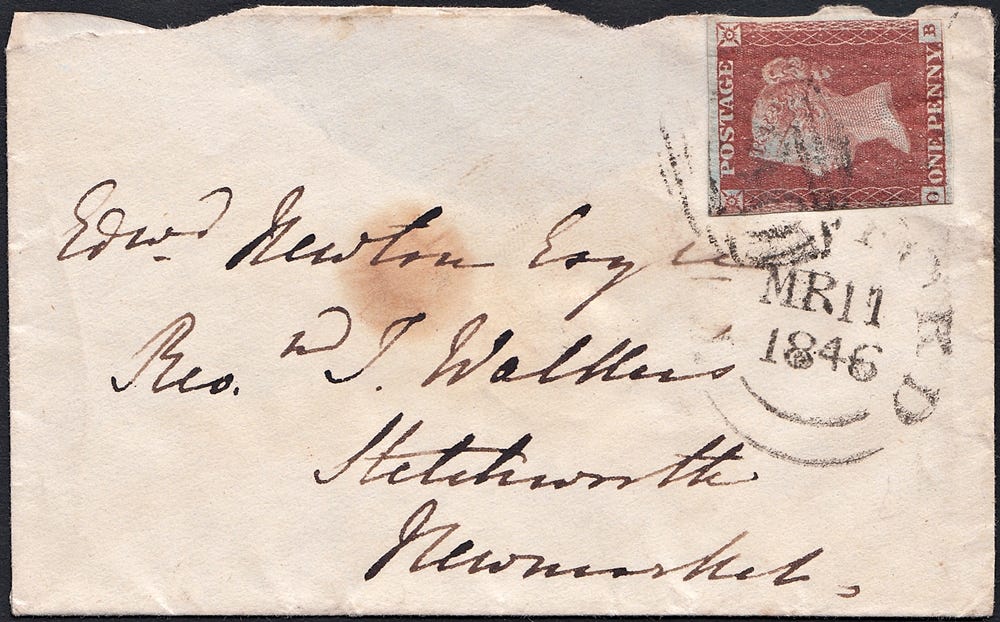 POSTAGE
ONE PENNY
B
Edwd. Newton Esqre
Revd. J. Walkers
Stetchworth
Newmarket,
MR 11
1846